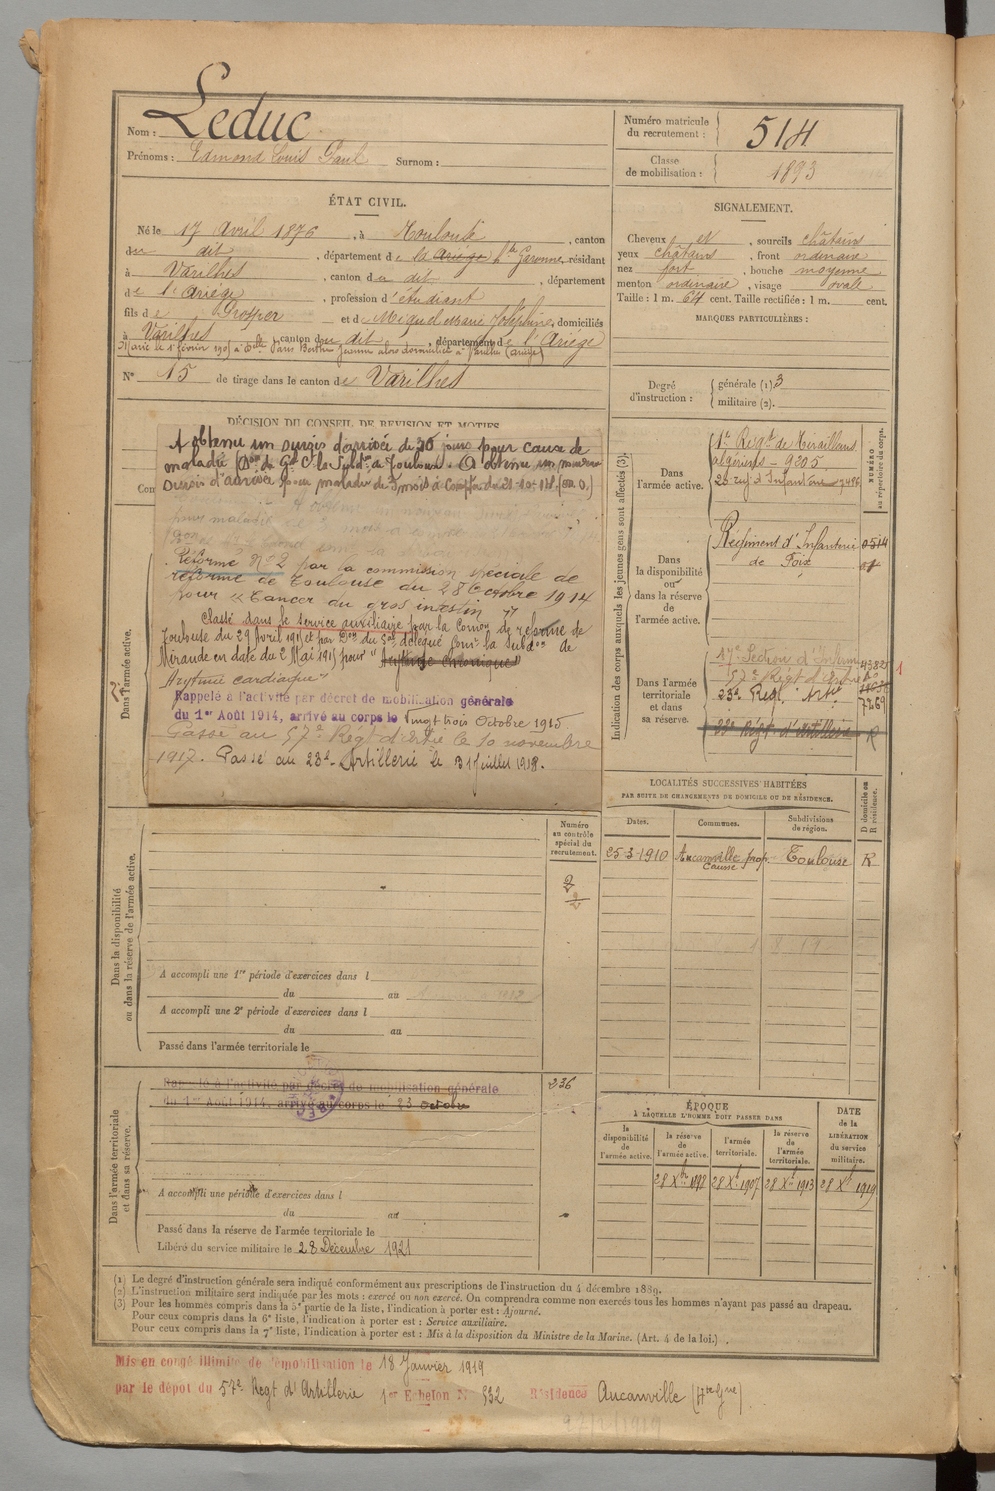 Nom : Leduc
Prénoms : Edmond Louis Paul Surnom :
Numéro matricule du recrutement : 514
Classe de mobilisation : 1893
ÉTAT CIVIL.
Né le 17 Avril 1876, à Toulouse, canton
du dit, département de la Ariège Hte Garonne, résidant
à Varilhes, canton du dit, département
de l'Ariège, profession d'étudiant
fils de Prosper et de Miquel Marie Joséphine, domiciliés
à Varilhes, canton du dit, département de l'Ariège
Marié le 1er février 1905 à Delle Paris Berthe Jeanne alors domiciliée à Varilhes (Ariège)
N° 15 de tirage dans le canton de Varilhes
SIGNALEMENT.
Cheveux et, sourcils châtains
yeux châtains, front ordinaire
nez fort, bouche moyenne
menton ordinaire, visage ovale
Taille : 1 m. 64 cent. Taille rectifiée : 1 m. cent.
MARQUES PARTICULIÈRES :
Degré d'instruction : générale (1) 3
militaire (2).
DÉCISION DU CONSEIL DE REVISION ET MOTIFS
Con
A obtenu un sursis d'arrivée de 30 jours pour cause de
maladie
Réformé N° 2 par la commission spéciale de
réforme de Toulouse du 28 Octobre 1914
pour "Cancer du gros intestin"
Classé dans le service auxiliaire par la Comon de réforme de
Toulouse du 29 Avril 1915 et par Don du Gal délégué pour la Subdon de
Mirande en date du 2 Mai 1915 pour "
Arytmie cardiaque"
Rappelé à l'activité par décret de mobilisation générale
du 1er Août 1914, arrivé au corps le Vingt trois Octobre 1915
Passé au 57e Regt d'Artie le 10 novembre
1917. Passé au 23e Artillerie le 31 Juillet 1918.
Dans l'armée active.
Indication des corps auxquels les jeunes gens sont affectés (3).
NUMÉRO au répertoire du corps.
Dans l'armée active.
1er Régt de Tirailleurs
algériens - 9205
Dans la disponibilité ou dans la réserve de l'armée active.
Régiment d'Infanterie 0514
de Foix
Dans l'armée territoriale et dans sa réserve.
17e Section d'Infirm
57e Régt d'Artie
23e Regt Artie 7269
23e Régt d'Artillerie R
1
LOCALITÉS SUCCESSIVES HABITÉES
PAR SUITE DE CHANGEMENTS DE DOMICILE OU DE RÉSIDENCE.
Dates. Communes. Subdivisions de région. D domicile ou R résidence.
25-3-1910 Aucamville Toulouse R
Dans la disponibilité ou dans la réserve de l'armée active.
Numéro au contrôle spécial du recrutement.
2
2
A accompli une 1re période d'exercices dans l
du au
A accompli une 2e période d'exercices dans l
du au
Passé dans l'armée territoriale le
Dans l'armée territoriale et dans sa réserve.
Rappelé à l'activité par décret de mobilisation générale 236
du 1er Août 1914, arrivé au corps le 23 octobre
A accompli une période d'exercices dans l
du au
Passé dans la réserve de l'armée territoriale le
Libéré du service militaire le 28 Décembre 1921
ÉPOQUE
À LAQUELLE L'HOMME DOIT PASSER DANS
la disponibilité de l'armée active. la réserve de l'armée active. l'armée territoriale. la réserve de l'armée territoriale.
DATE de la LIBÉRATION du service militaire.
28 Xbre 1898 28 Xe 1907 28 Xe 1913 28 Xe 1919
(1) Le degré d'instruction générale sera indiqué conformément aux prescriptions de l'instruction du 4 décembre 1889.
(2) L'instruction militaire sera indiquée par les mots : exercé ou non exercé. On comprendra comme non exercés tous les hommes n'ayant pas passé au drapeau.
(3) Pour les hommes compris dans la 5e partie de la liste, l'indication à porter est : Ajourné.
Pour ceux compris dans la 6e liste, l'indication à porter est : Service auxiliaire.
Pour ceux compris dans la 7e liste, l'indication à porter est : Mis à la disposition du Ministre de la Marine. (Art. 4 de la loi.)
Mis en congé illimité de démobilisation le 18 Janvier 1919
par le dépôt du 57e Regt d'Artillerie 1er Echelon N° 532 Résidence Aucamville (Hte Gne)